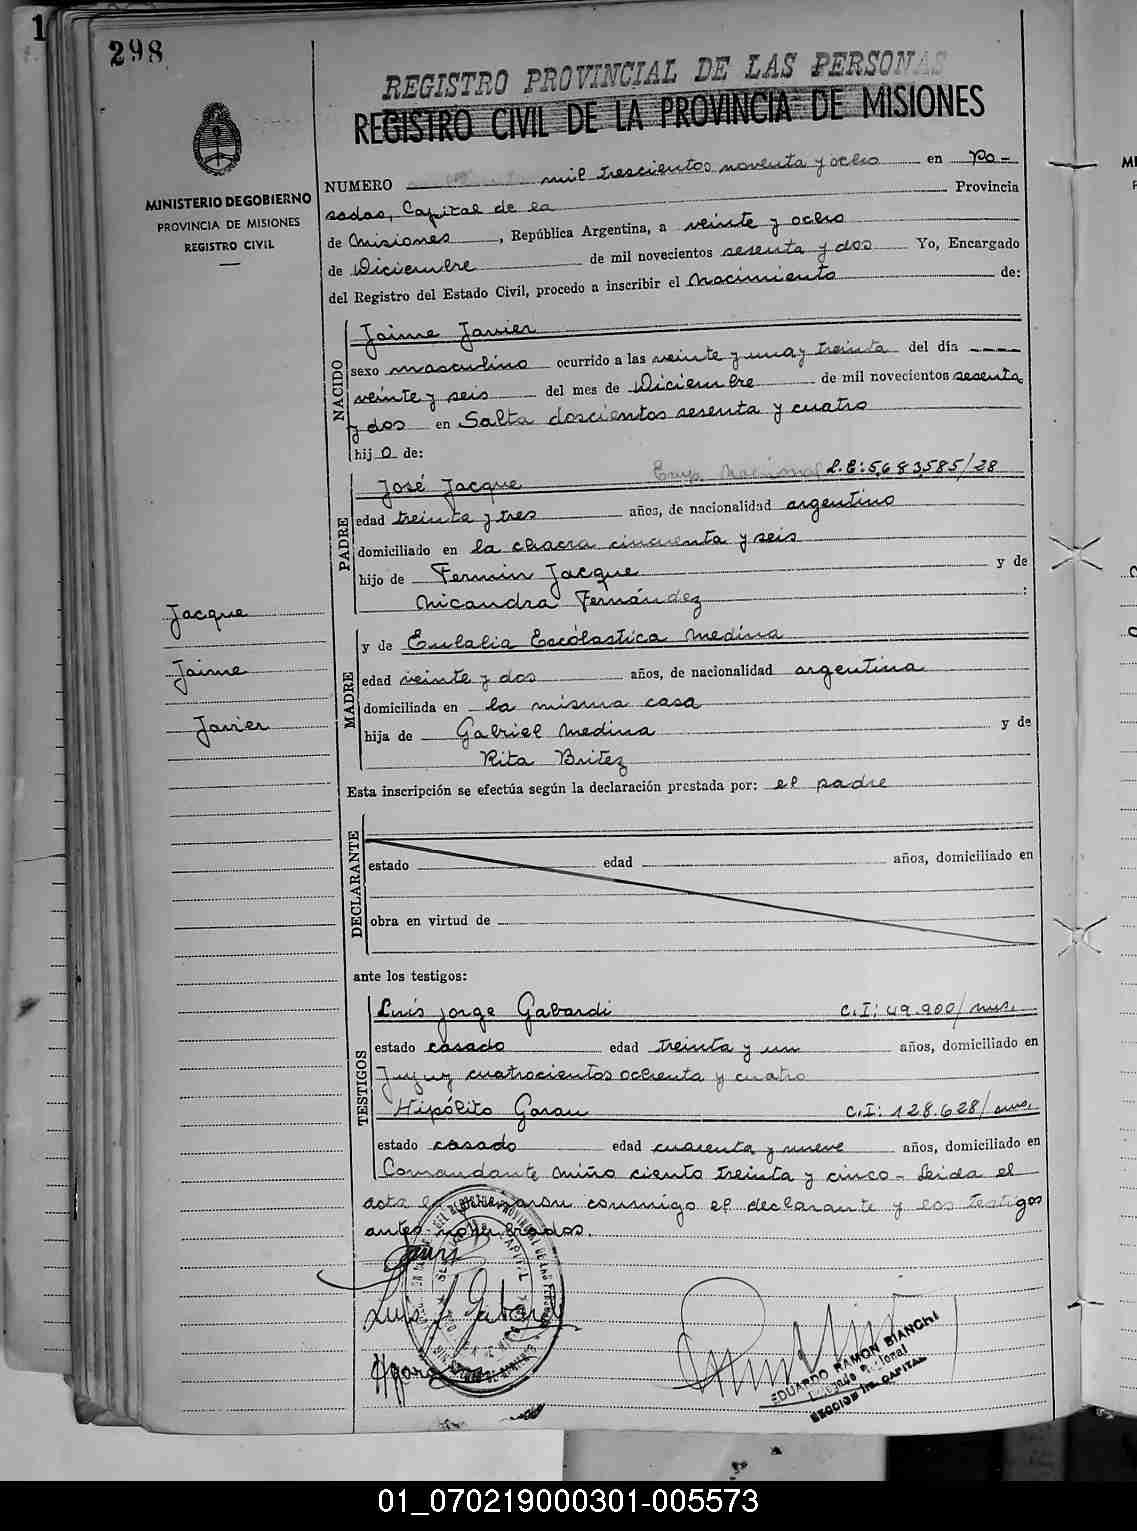 1
298
REGISTRO PROVINCIAL DE LAS PERSONAS
REGISTRO CIVIL DE LA PROVINCIA DE MISIONES
MINISTERIO DE GOBIERNO
PROVINCIA DE MISIONES
REGISTRO CIVIL
NUMERO mil trescientos noventa y ocho en Po-
sadas, Capital de la Provincia
de Misiones, República Argentina, a veinte y ocho
de Diciembre de mil novecientos sesenta y dos Yo, Encargado
del Registro del Estado Civil, procedo a inscribir el Nacimiento de:
NACIDO
Jaime Javier
sexo masculino ocurrido a las veinte y una y treinta del día ----
veinte y seis del mes de Diciembre de mil novecientos sesenta
y dos en Salta doscientos sesenta y cuatro
hijo de:
PADRE
José Jacque L.E:5,683,585/28
edad treinta y tres años, de nacionalidad argentino
domiciliado en la chacra cincuenta y seis
hijo de Fermin Jacque y de
Nicandra Fernández :
Jacque
Jaime
Javier
MADRE
y de Eulalia Escólastica Medina
edad veinte y dos años, de nacionalidad argentina
domiciliada en la misma casa
hija de Gabriel Medina y de
Rita Britez
Esta inscripción se efectúa según la declaración prestada por: el padre
DECLARANTE
estado edad años, domiciliado en
obra en virtud de
ante los testigos:
TESTIGOS
Luis Jorge Gabardi C.I: 49.900/mns.
estado casado edad treinta y un años, domiciliado en
Jujuy cuatrocientos ochenta y cuatro
Hipólito Garau C.I: 128.628/mns.
estado casado edad cuarenta y nueve años, domiciliado en
Comandante Miño ciento treinta y cinco - Leida el
acta conmigo el declarante y los testigos
antes nombrados.
Luis J Gabardi
EDUARDO RAMON BIANCHI
Delegado Regional
SECCION 1ra. CAPITAL
01_070219000301-005573